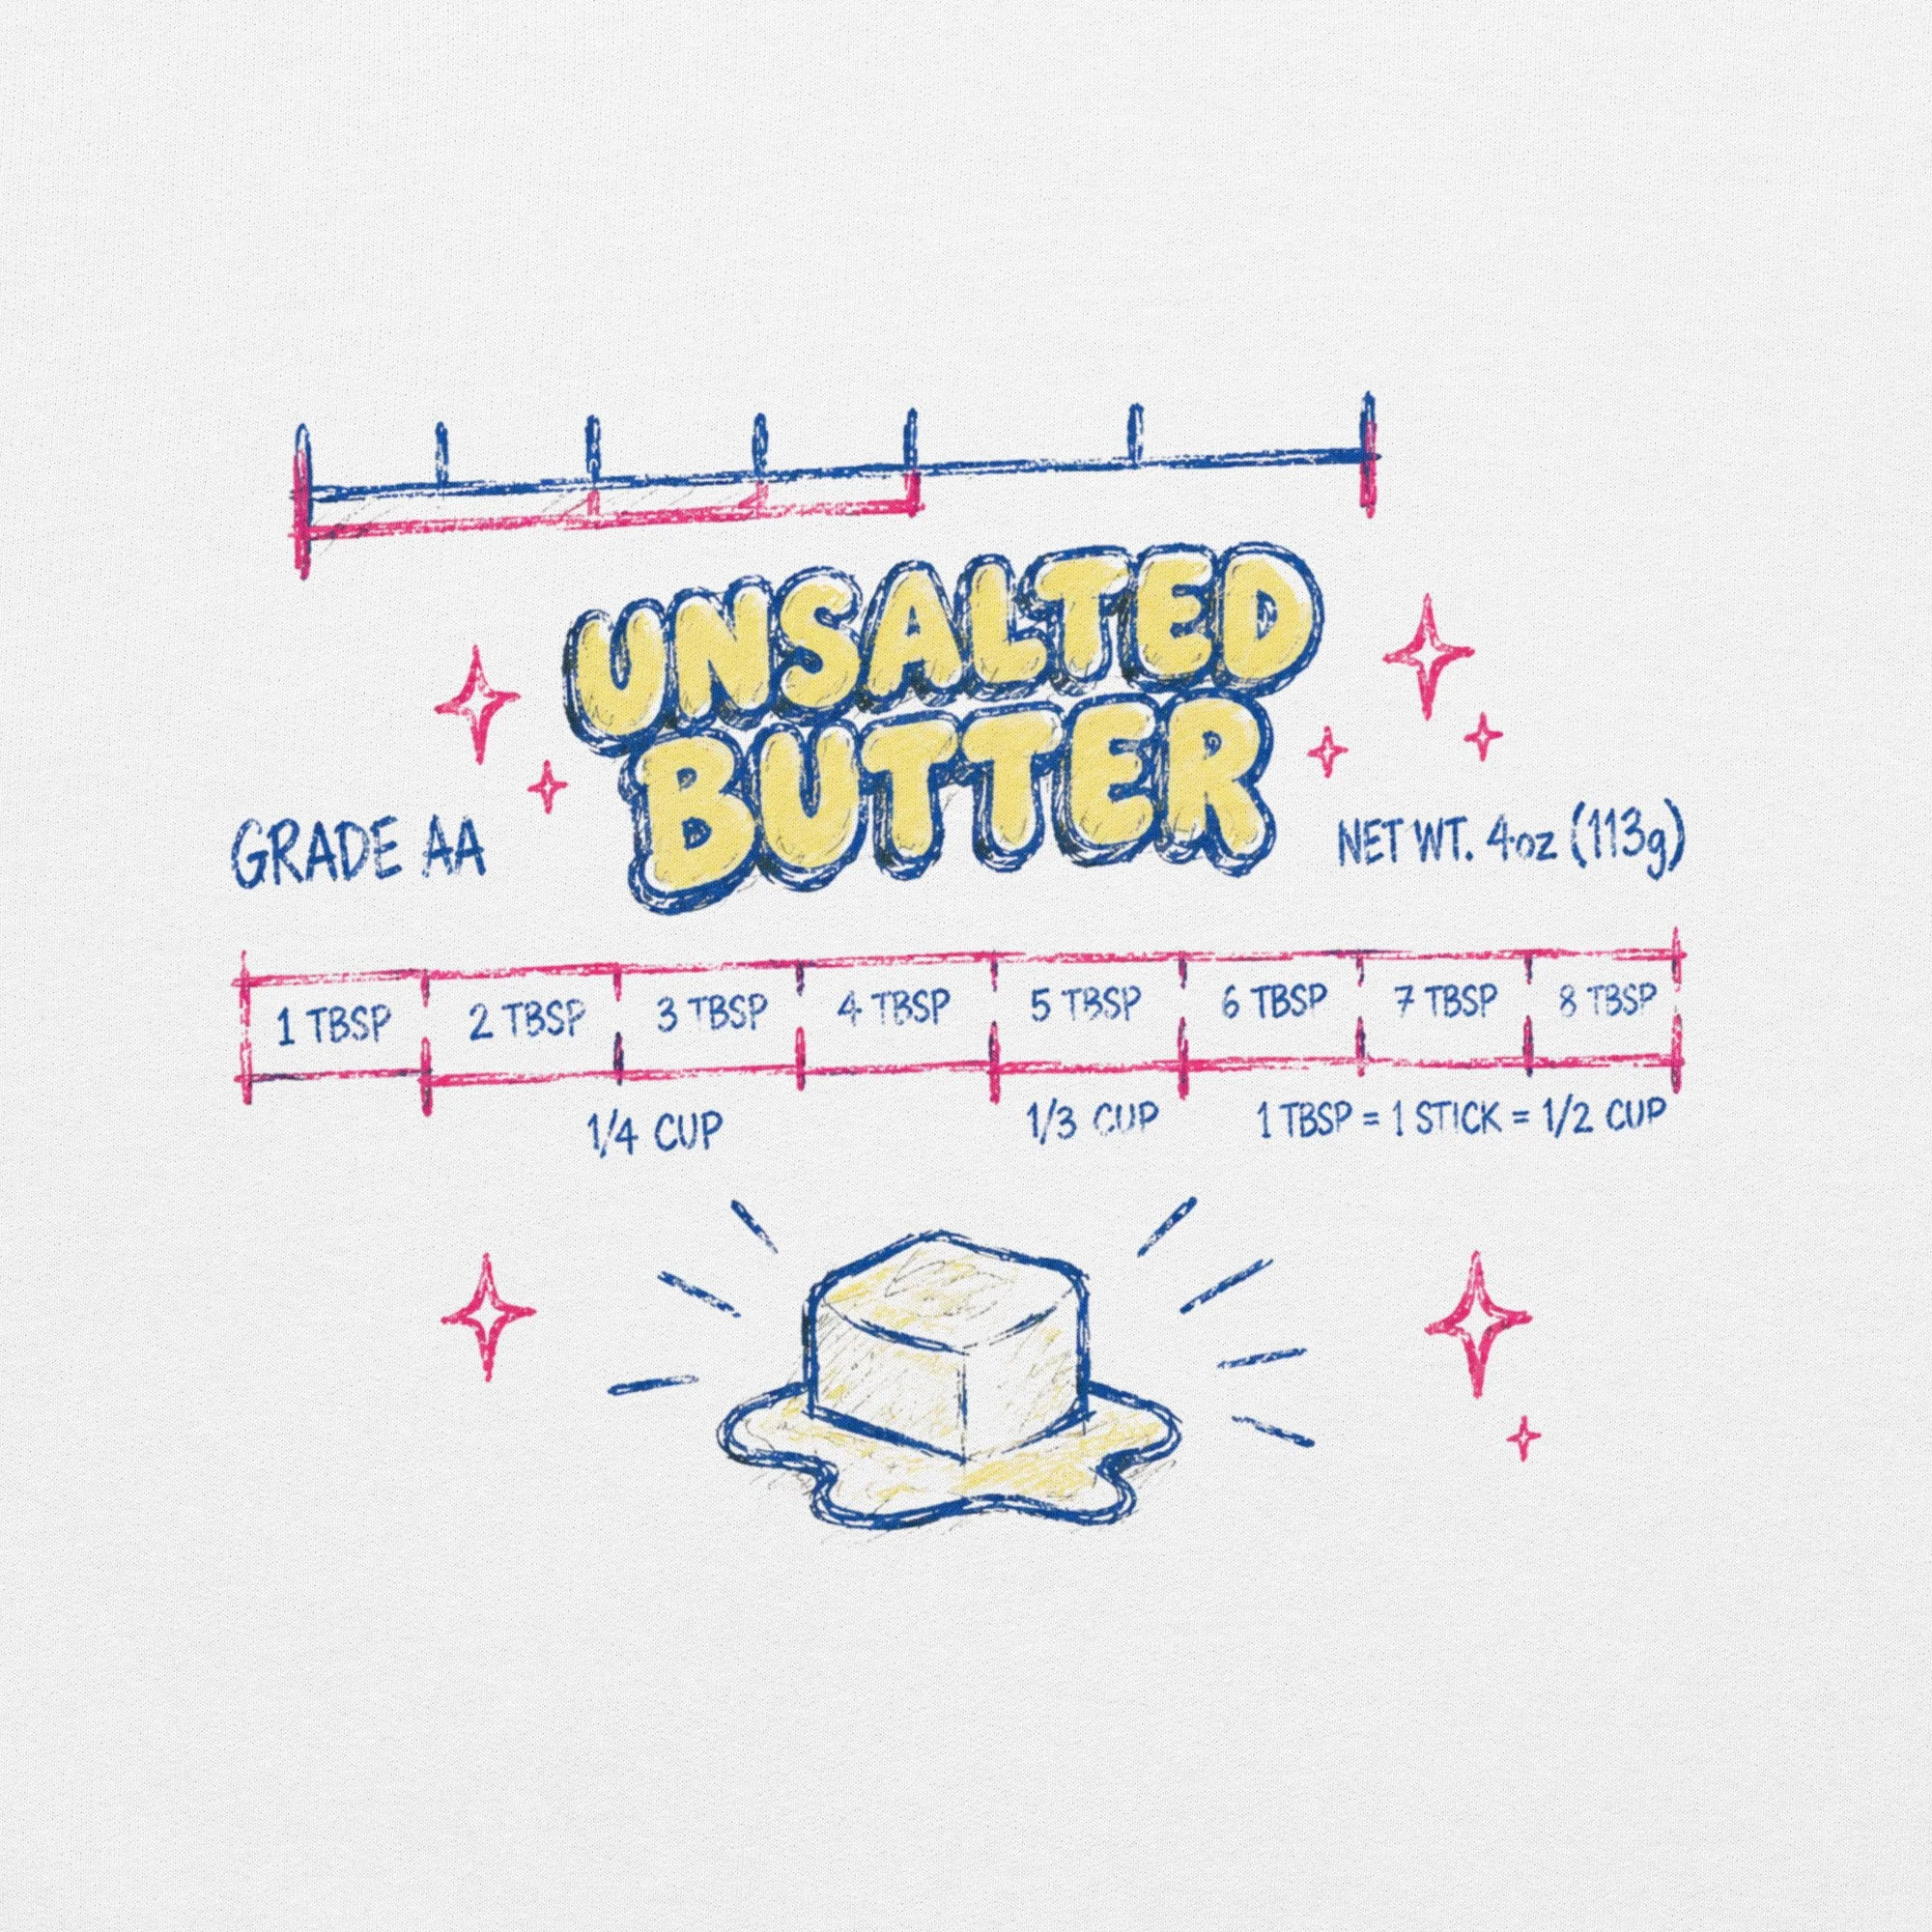 UNSALTED
BUTTER
GRADE AA
NET WT. 4oz (113g)
1 TBSP 2 TBSP 3 TBSP 4 TBSP 5 TBSP 6 TBSP 7 TBSP 8 TBSP
1/4 CUP 1/3 CUP 1 TBSP = 1 STICK = 1/2 CUP